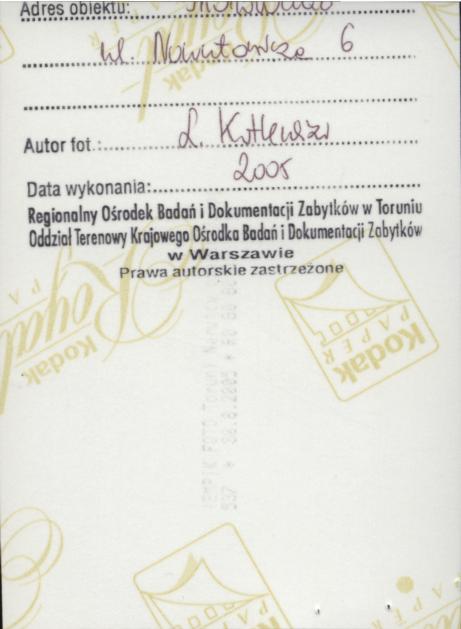 Adres obiektu:
ul. 6
Autor fot.: L.
2005
Data wykonania:
Regionalny Ośrodek Badań i Dokumentacji Zabytków w Toruniu
Oddział Terenowy Krajowego Ośrodka Badań i Dokumentacji Zabytków
w Warszawie
Prawa autorskie zastrzeżone
Kodak
Royal
PA
Kodak
PAPER
EMPIK FOTO Toruń
537 * 30.8.2005 *